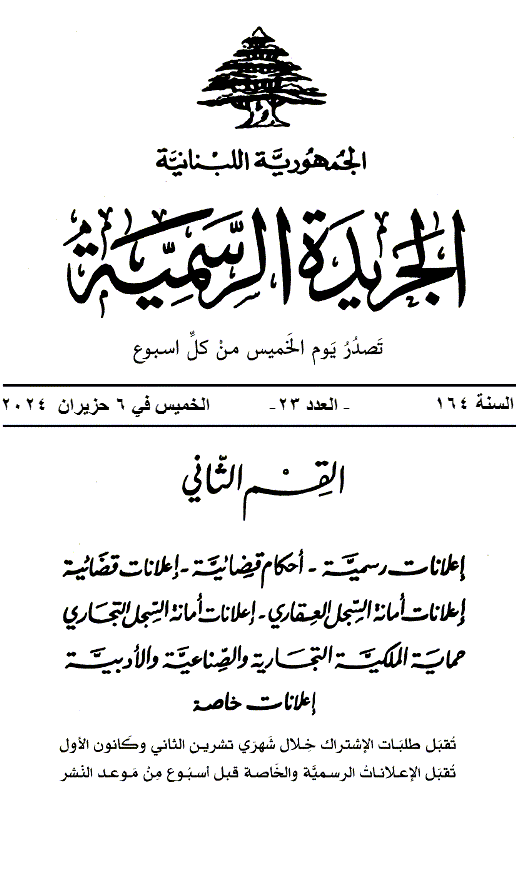 الجُمهُوريَّة اللبْنانيَّة
الجَريدَة الرسَّمِيَّة
تَصدُرُ يَوم الخَميس منْ كلِّ اسبوع
السنة ١٦٤ - العدد ٢٣- الخميس في ٦ حزيران ٢٠٢٤
القِسْم الثّاني
إعلانات رسميَّة - أحكام قضائيَّة - إعلانات قضائية
إعلانات أمانة السِّجل العِقاري - إعلانات أمانة السِّجل التجاري
حماية الملكيَّة التجارية والصِّناعيَّة والأدبيَّة
إعلانات خاصة
تُقبَل طلبَات الإشتراك خِلال شَهرَي تشرين الثاني وكَانون الأول
تُقبَل الإعلاناتُ الرسميَّة والخَاصة قبل أسبُوع مِنْ مَوعد النَشر